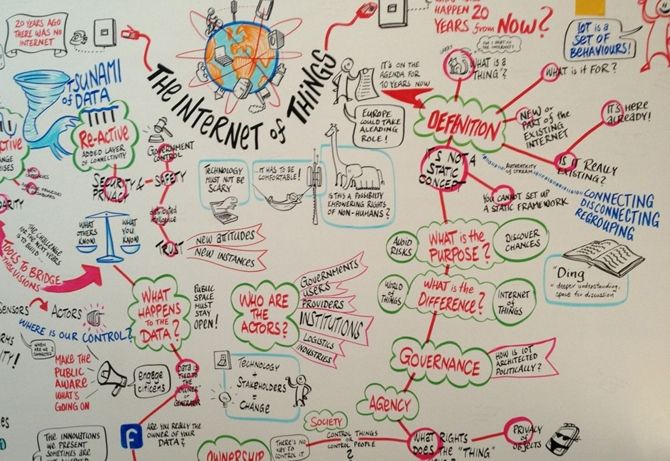 20 YEARS AGO
THERE WAS NO
INTERNET
HAPPEN 20
YEARS from NOW?
IoT is a
SET OF
BEHAVIOURS!
THE INTERNET of THINGS
IT'S ON THE
AGENDA FOR
10 YEARS NOW
WHAT IS A
"THING"?
WHAT is it FOR?
TSUNAMI
of DATA
EUROPE
COULD TAKE
A LEADING
ROLE!
DEFINITION
NEW OR
PART OF THE
EXISTING
INTERNET
IT'S HERE
ALREADY!
RE-ACTIVE
ADDED LAYER
OF CONNECTIVITY
GOVERNMENT
CONTROL
SECURITY &
PRIVACY
SAFETY
TECHNOLOGY
MUST NOT BE
SCARY
...IT HAS TO BE
COMFORTABLE!
IS THIS A POSSIBILITY
EMPOWERING RIGHTS
OF NON-HUMANS?
IT'S NOT
A STATIC
CONCEPT
AUTHENTICITY
OF STREAM
IS it REALLY
EXISTING?
YOU CANNOT SET UP
A STATIC FRAMEWORK
CONNECTING
DISCONNECTING
REGROUPING
WHAT
OTHERS
KNOW
WHAT
YOU
KNOW
TRUST
NEW ATTITUDES
NEW INSTANCES
AVOID
RISKS
WHAT is the
PURPOSE?
DISCOVER
CHANCES
"Ding"
= deeper understanding,
space for discussion
TOOLS to BRIDGE
WORLD
OF
THINGS
WHAT is the
DIFFERENCE?
INTERNET
OF
THINGS
WHAT
HAPPENS
TO THE
DATA?
PUBLIC
SPACE
MUST
STAY
OPEN!
WHO ARE
THE
ACTORS?
GOVERNMENTS
USERS
PROVIDERS
INSTITUTIONS
LOGISTICS
INDUSTRIES
SENSORS
ACTORS
WHERE IS OUR CONTROL?
GOVERNANCE
HOW IS IoT
ARCHITECTED
POLITICALLY?
MAKE THE
PUBLIC
AWARE
WHAT'S
GOING ON
ENGAGE
CITIZENS
TECHNOLOGY
+
STAKEHOLDERS
= CHANGE
AGENCY
THE INNOVATIONS
WE PRESENT
SOMETIMES
f
ARE YOU REALLY THE
OWNER OF YOUR
DATA?
OWNERSHIP
SOCIETY
THERE'S NO
KEY TO
CONTROL IT
CONTROL THINGS
OR CONTROL
PEOPLE?
WHAT RIGHTS
DOES THE "THING"
PRIVACY
OF
OBJECTS